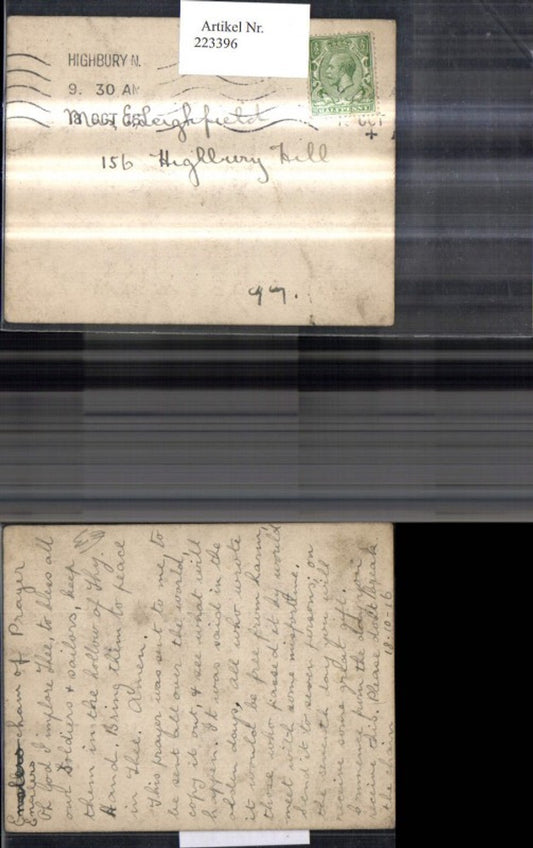 Artikel Nr.
223396
HIGHBURY N.
9. 30 AM
18 OCT
HALFPENNY
Leighfield
156 Highbury Hill
Endless chain of Prayer
Endless
Oh God I implore Thee, to bless all
our Soldiers & sailors, keep
them in the hollow of Thy
Hand. Bring them to peace
in Thee. Amen.
This prayer was sent to me, to
be sent all over the world,
copy it out, & see what will
happen. It was said in the
olden days, all who wrote
it would be free from harm,
those who passed it by would
meet with some misfortune.
Send it to seven persons; on
the seventh day you will
receive some great gift.
Commence from the day you
receive this. Please don't break
the chain 18-10-16